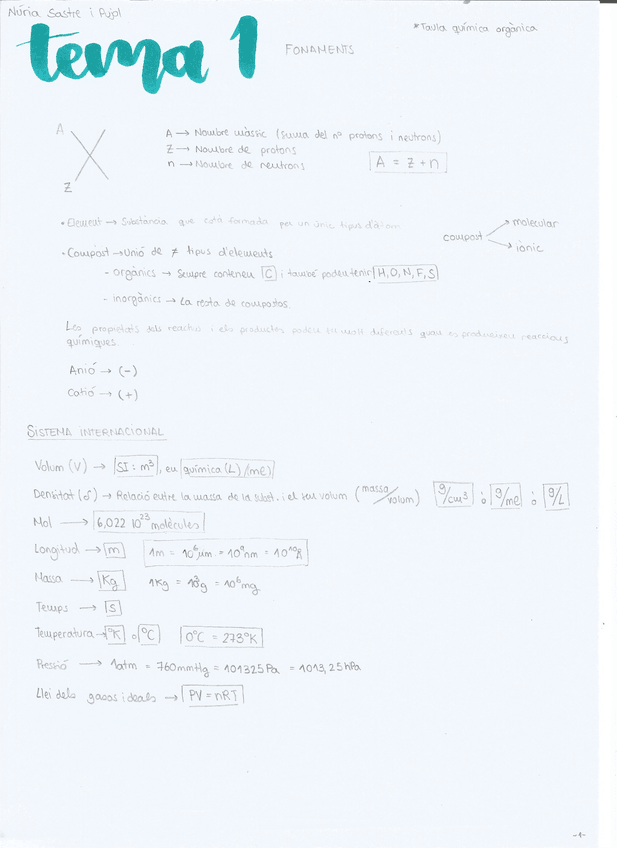 Núria Sastre i Pujol
*Taula química orgànica
tema 1
FONAMENTS
A
Z
A → Nombre màssic (suma del nº protons i neutrons)
Z → Nombre de protons
n → Nombre de neutrons
A = Z + n
• Element → Substància que està formada per un únic tipus d'àtom
compost → molecular
→ iònic
• Compost → Unió de ≠ tipus d'elements
- orgànics → Sempre contenen C i també poden tenir H, O, N, F, S
- inorgànics → La resta de compostos.
Les propietats dels reactius i els productes poden ser molt diferents quan es produeixen reaccions
químiques.
Anió → (-)
Catió → (+)
SISTEMA INTERNACIONAL
Volum (V) → SI: m³, en química (L)/(ml)
Densitat (δ) → Relació entre la massa de la subst. i el seu volum (massa/volum) g/cm³ ò g/ml ò g/L
Mol → 6,022 10²³ molècules
Longitud → m 1m = 10⁶µm = 10⁹nm = 10¹⁰Å
Massa → Kg 1Kg = 10³g = 10⁶mg
Temps → S
Temperatura → ºK o ºC 0ºC = 273ºK
Pressió → 1atm = 760mmHg = 101325Pa = 1013,25hPa
Llei dels gasos ideals → PV = nRT
-1-